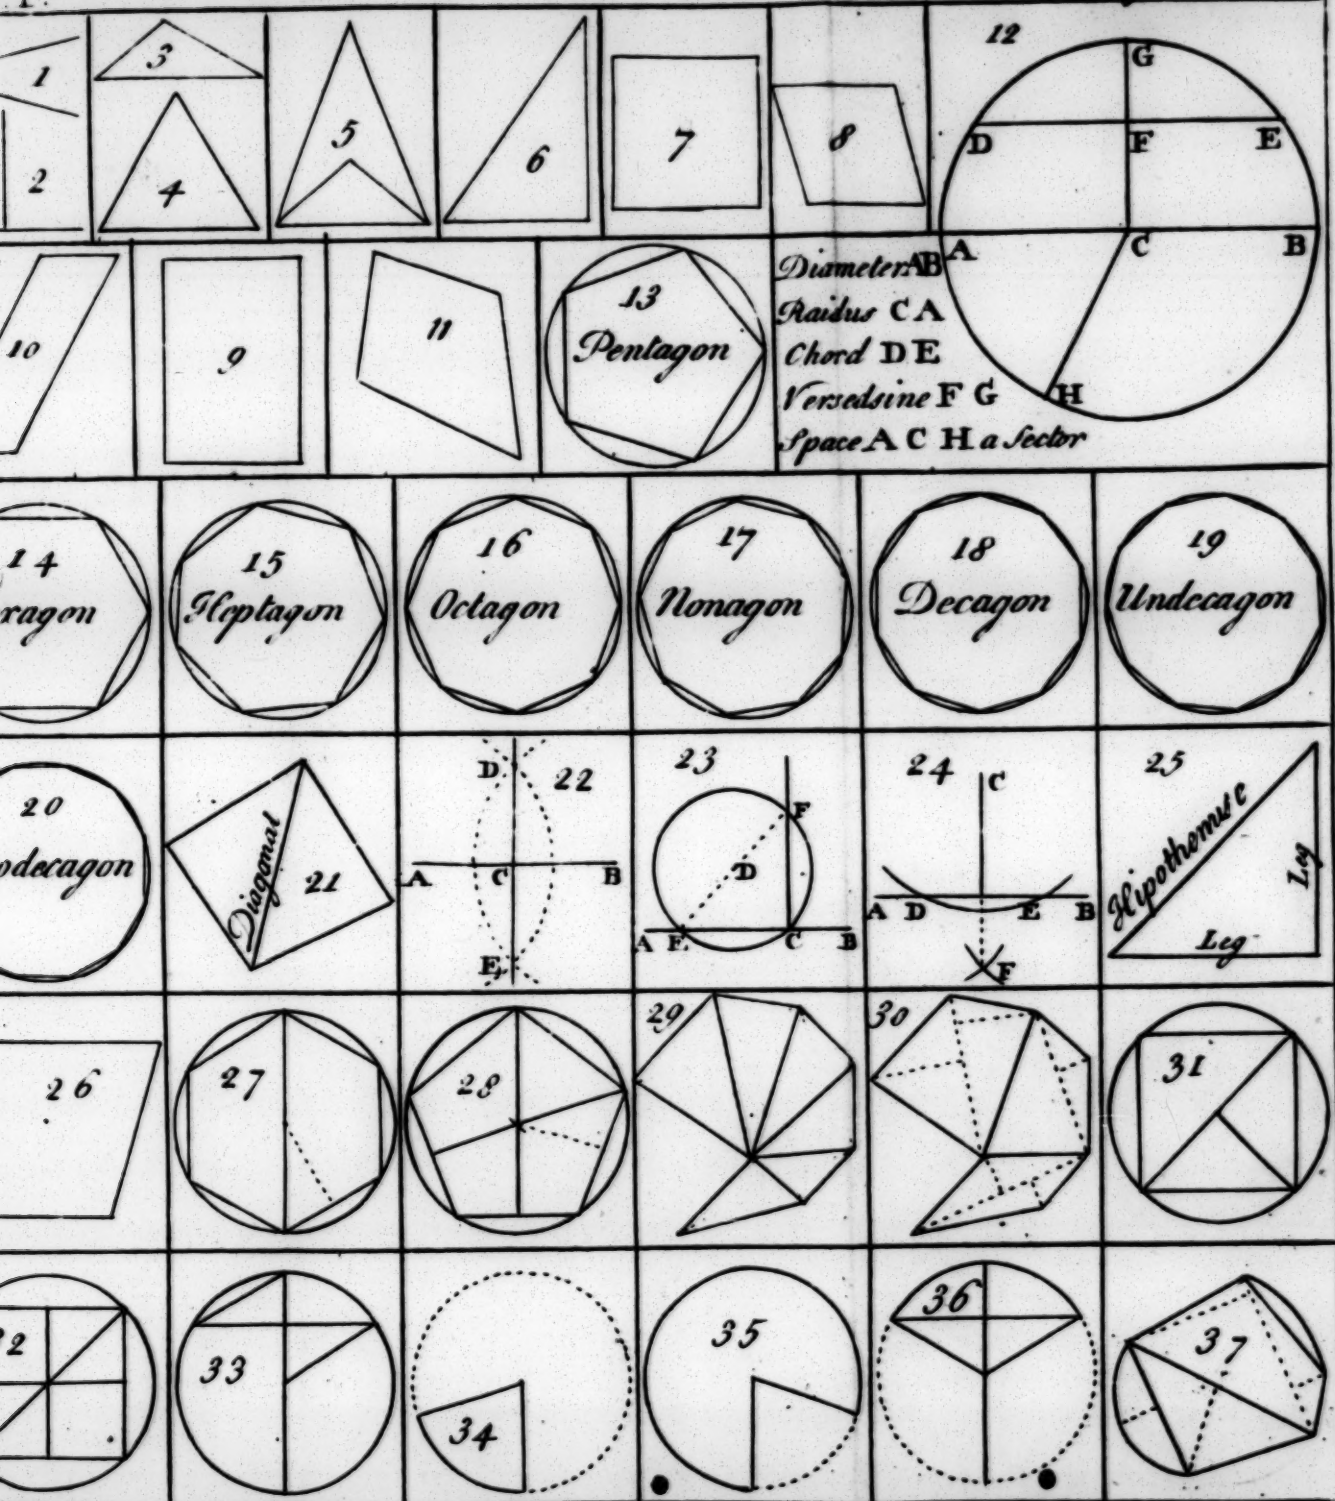 1
2
3
4
5
6
7
8
12
G
D F E
A C B
H
10
9
11
13
Pentagon
Diameter AB
Raidus C A
Chord D E
Versedsine F G
Space A C H a Sector
14
xagon
15
Heptagon
16
Octagon
17
Nonagon
18
Decagon
19
Undecagon
20
odecagon
Diagonal
21
22
D
A C B
E
23
F
D
A E C B
24
C
A D E B
F
25
Hipothemuse
Leg
Leg
26
27
28
29
30
31
32
33
34
35
36
37